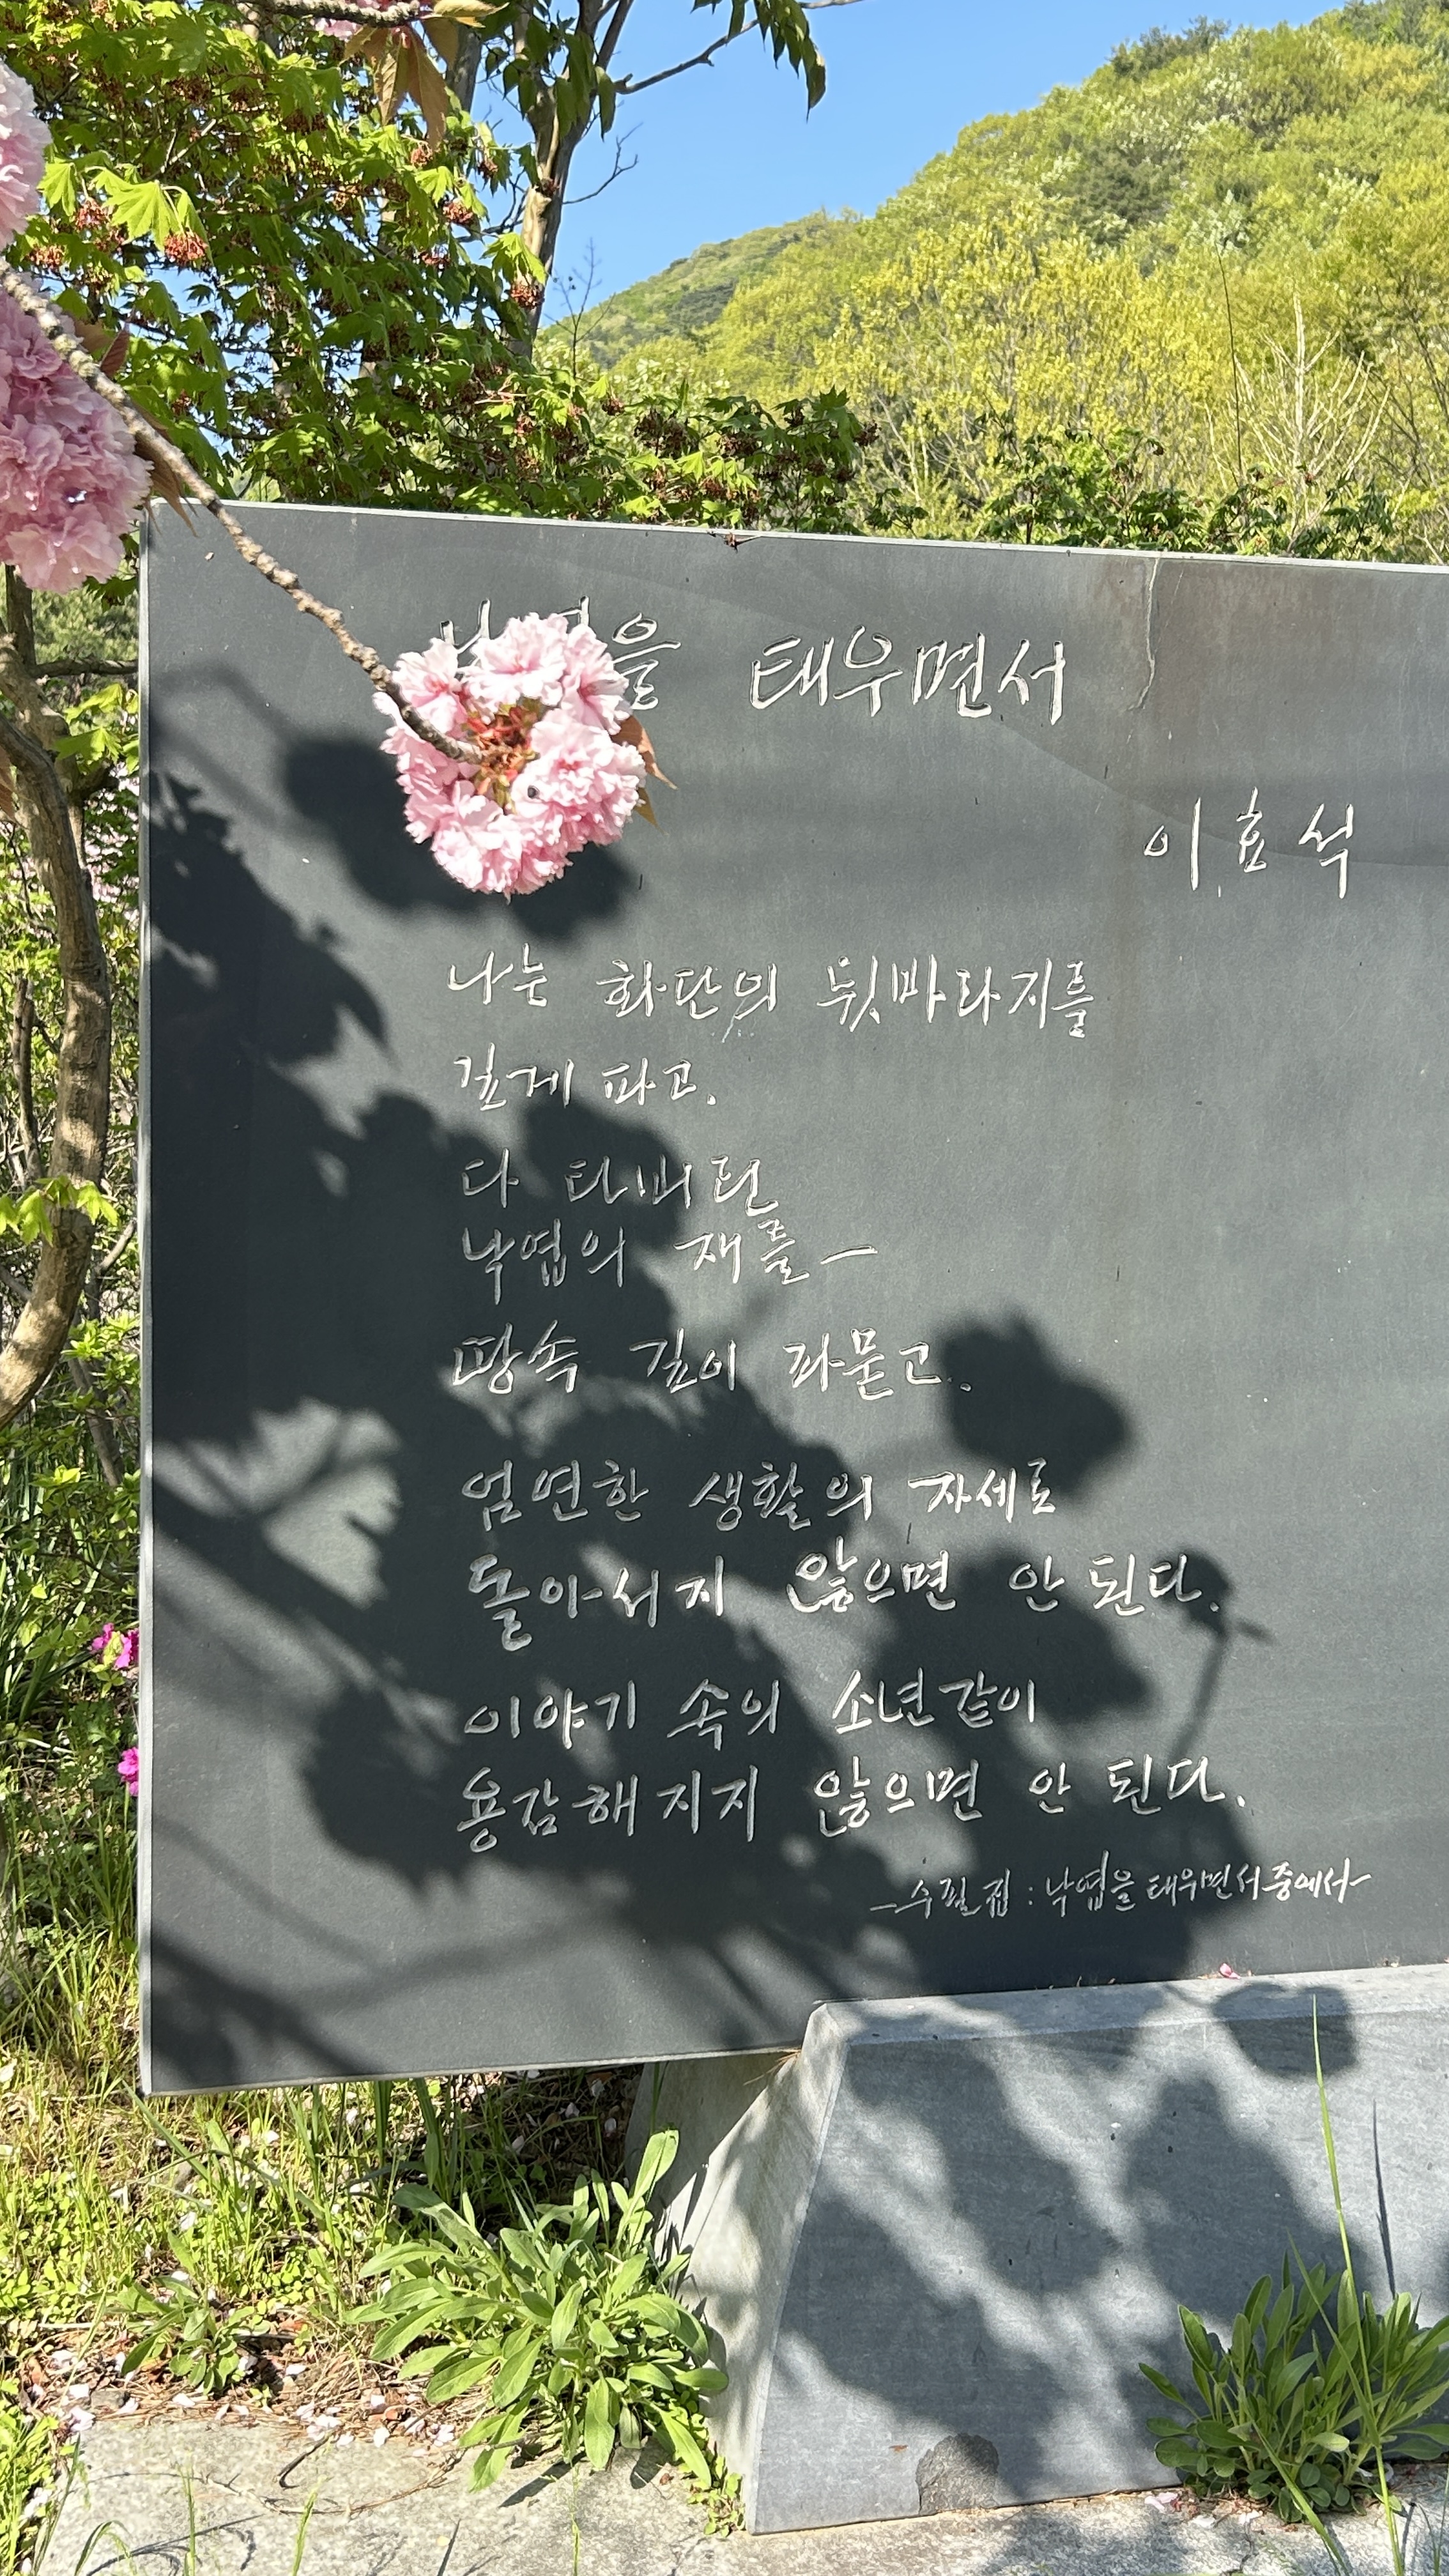 낙엽을 태우면서
이효석
나는 화단의 뒷바라지를
깊게 파고.
다 타버린
낙엽의 재를—
땅속 깊이 파묻고.
엄연한 생활의 자세로
돌아서지 않으면 안 된다.
이야기 속의 소년같이
용감해지지 않으면 안 된다.
—수필집 : 낙엽을 태우면서 중에서—